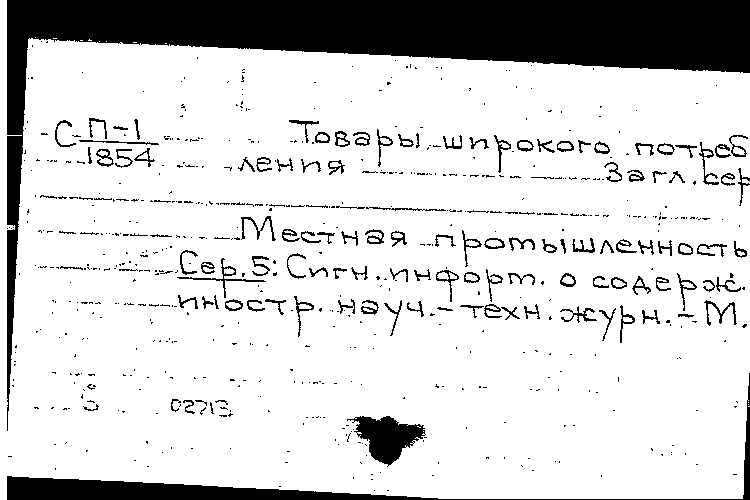 С П-1 Товары широкого потреб
1854 ления Загл. сер
Местная промышленность
Сер. 5: Сигн. информ. о содерж.
иностр. науч.-техн. журн. - М.
02713